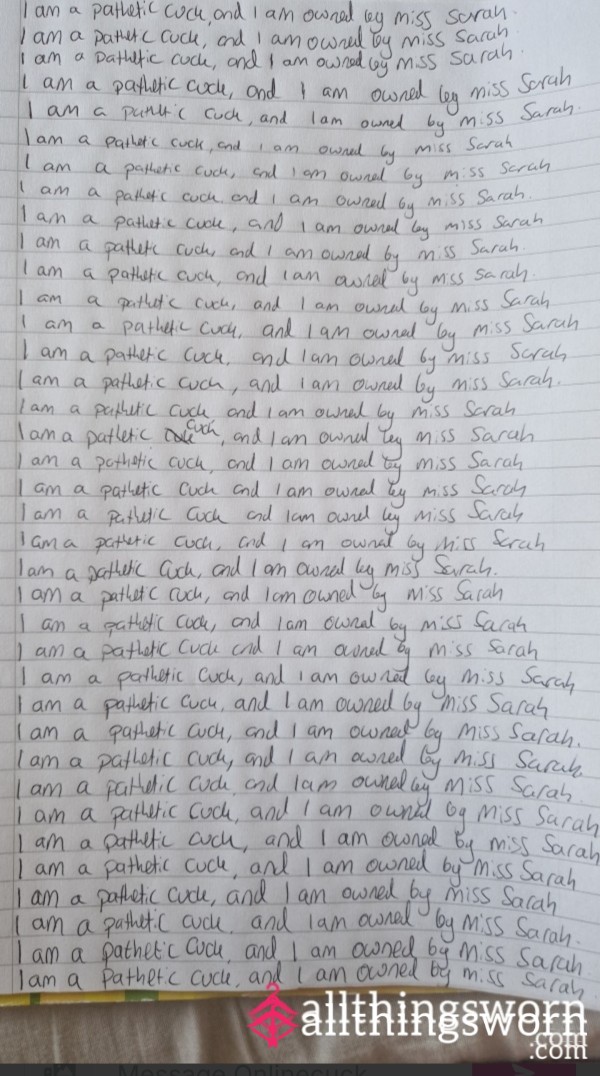 I am a pathetic cuck, and I am owned by miss Sarah.
I am a pathetc cuck, and I am owned by miss Sarah.
I am a pathetic cuck, and I am owned by miss Sarah.
I am a pathetic cuck, and I am owned by miss Sarah
I am a pathetic cuck, and I am owned by miss Sarah.
I am a pathetic cuck, and I am owned by miss Sarah
I am a pathetic cuck, and I am owned by miss Sarah
I am a pathetic cuck and I am owned by miss Sarah.
I am a pathetic cuck, and I am owned by miss Sarah
I am a pathetic cuck, and I am owned by miss Sarah.
I am a pathetic cuck, and I am owned by miss Sarah.
I am a pathetic cuck, and I am owned by miss Sarah
I am a pathetic cuck, and I am owned by miss Sarah
I am a pathetic cuck, and I am owned by miss Sarah
I am a pathetic cuck, and I am owned by miss Sarah.
I am a pathetic cuck and I am owned by miss Sarah
I am a pathetic cuck, and I am owned by miss Sarah
I am a pathetic cuck, and I am owned by miss Sarah
I am a pathetic cuck and I am owned by miss Sarah
I am a pathetic cuck and I am owned by miss Sarah
I am a pathetic cuck, and I am owned by miss Sarah
I am a pathetic cuck, and I am owned by miss Sarah.
I am a pathetc cuck, and I am owned by miss Sarah
I am a pathetic cuck, and I am owned by miss Sarah
I am a pathetic cuck and I am owned by miss Sarah
I am a pathetic cuck, and I am owned by miss Sarah
I am a pathetic cuck, and I am owned by miss Sarah
I am a pathetic cuck, and I am owned by miss Sarah.
I am a pathetic cuck, and I am owned by miss Sarah
I am a pathetic cuck and I am owned by miss Sarah.
I am a pathetic cuck, and I am owned by miss Sarah
I am a pathetic cuck, and I am owned by miss Sarah
I am a pathetic cuck, and I am owned by miss Sarah
I am a pathetic cuck, and I am owned by miss Sarah
I am a pathetic cuck, and I am owned by miss Sarah.
I am a pathetic cuck, and I am owned by miss Sarah
I am a pathetic cuck, and I am owned by miss Sarah.
allthingsworn
allthingsworn
.com
.com
Message Onlinecuck